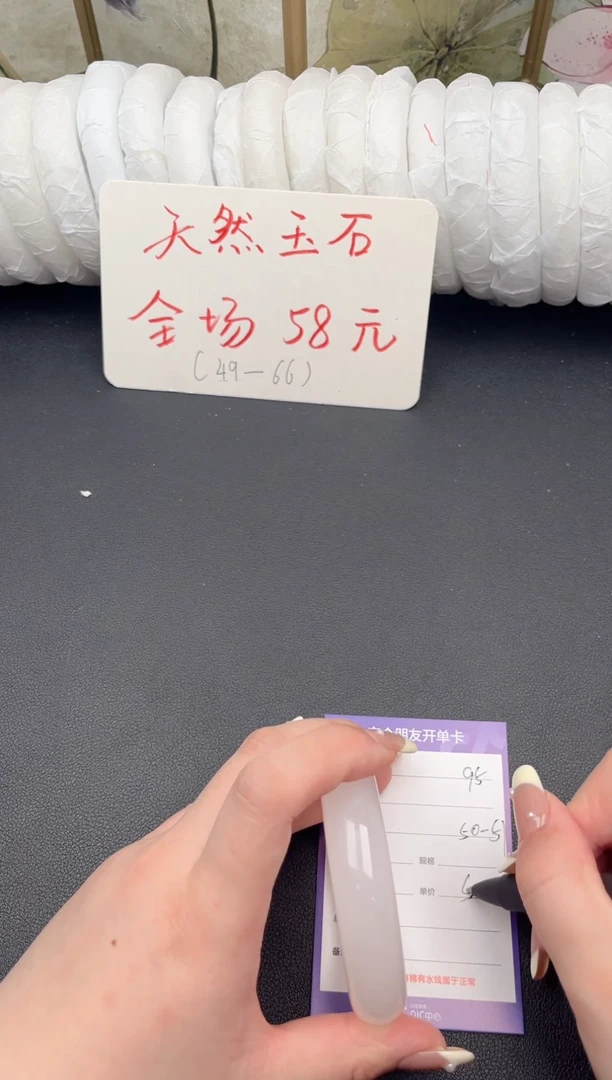 天然玉石
全场 58元
(49—66)
朋友开单卡
95
50-5
规格
单价
备
稀有水线属于正常
DIC中心